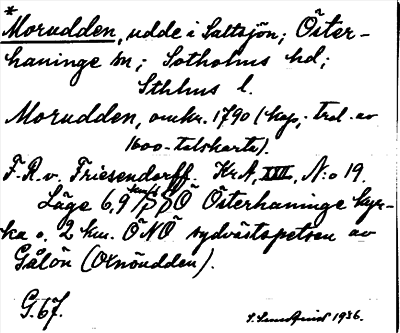 *
Morudden, udde i Saltsjön; Öster-
haninge sn; Sotholms hd;
Sthlms l.
Morudden, omkr. 1790 (kop., trol. av
1600-talskarta).
F. R. v. Friesendorff. KrA, XIII, N:o 19.
Läge 6,9 km SÖ Österhaninge kyr-
ka o. 2 km. ÖNÖ sydvästspetsen av
Gålön (Oxnöudden).
G. 67.
1936.